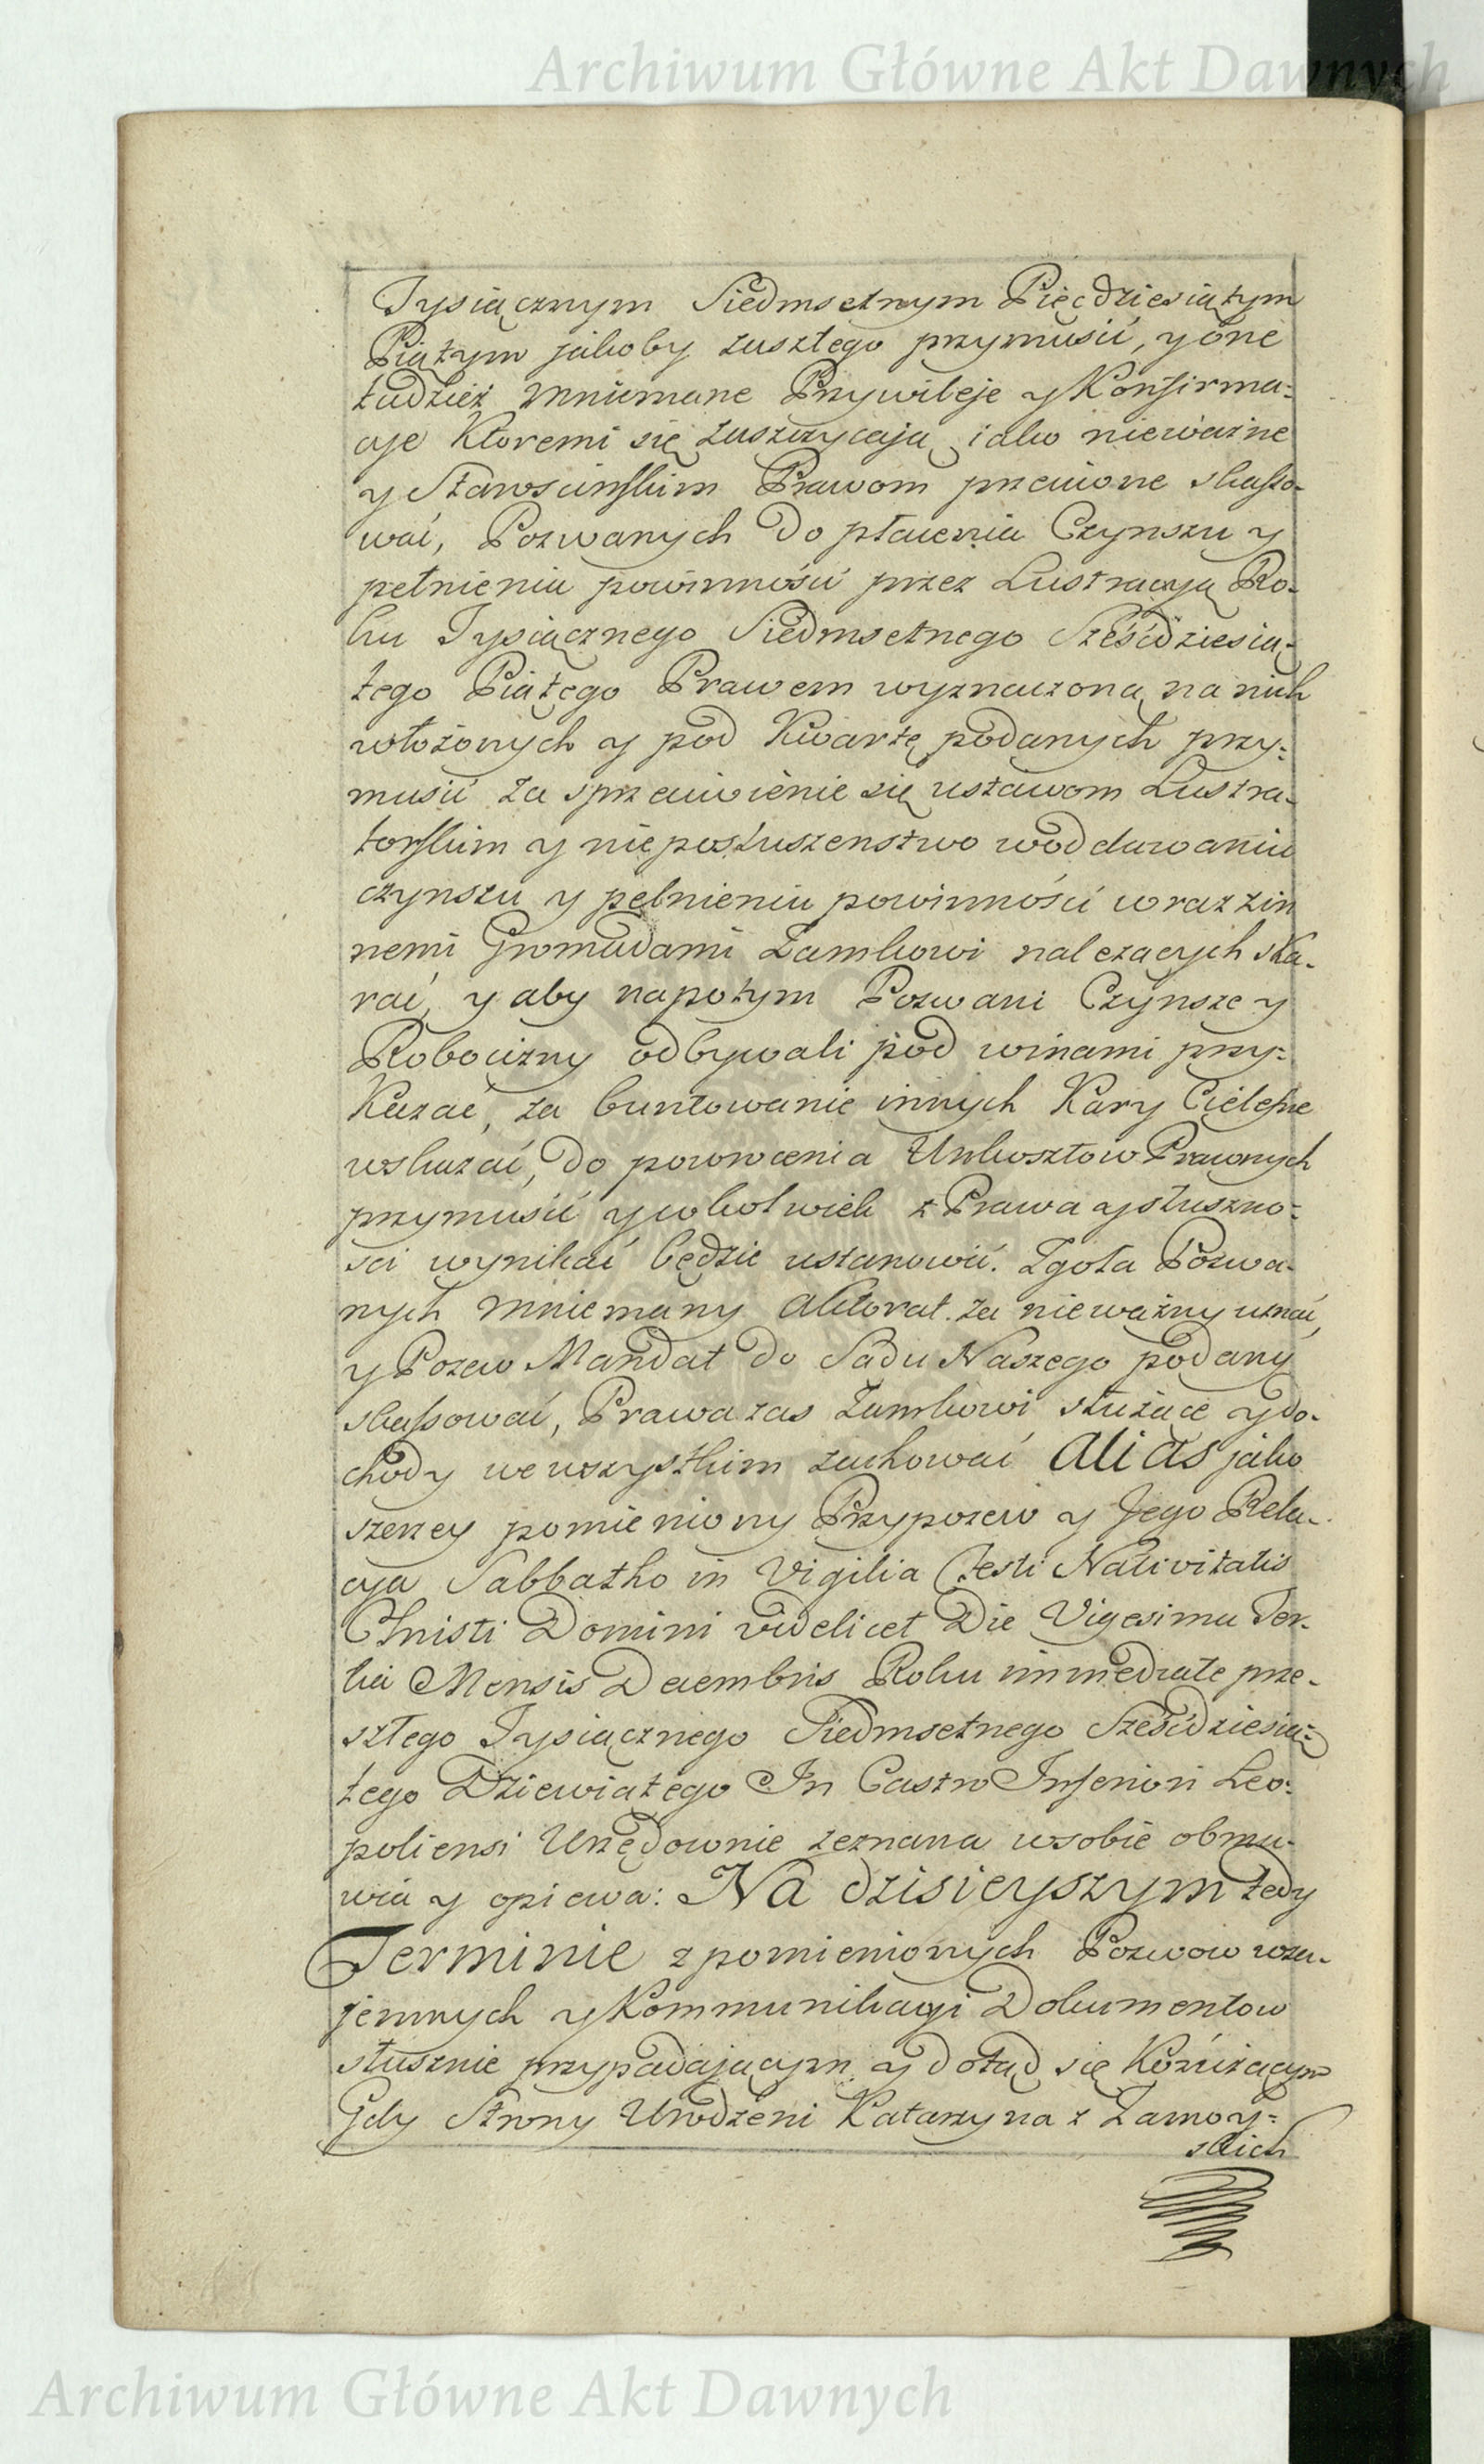 Archiwum Główne Akt Dawnych
Tysiącznym Siedmsetnym Pięcdziesiątym
Piątym jakoby zuszłego przymusić, y one
tudzież mniemane Przywileje y Konfirma-
cje Ktoremi się zuszczycają iako nieważne
y Starościnskim Prawom przeciwne skasso-
wać, Pozwanych do płacenia Czynszu y
pełnienia powinności przez Lustracyą Ro-
ku Tysiącznego Siedmsetnego Sześćdziesią-
tego Piątego Prawem wyznaczoną na nich
włożonych y pod Kwartę podanych przy-
musić za sprzeciwienie się ustawom Lustra-
torskim y nieposłuszenstwo w oddawaniu
czynszu y pełnieniu powinności wraz z in
nemi Gromadami Zamkowi nalezących ska-
rać, y aby napotym Pozwani Czynsze y
Robocizny odbywali pod winami przy-
kazać, za buntowanie innych Kary Cielesne
wskazać, do powrocenia Unkosztow Prawnych
przymusić y cokolwiek z Prawa y słuszno-
sci wynikać będzie ustanowić. Zgoła Pozwa-
nych mniemany Aktorat za nieważny uznać,
y Pozew Mandat do Sadu Naszego podany
skassować, Prawa zas Zamkowi służące y do-
chody we wszystkim zachować Alias jako
szerzey pomieniony Przypozew y Jego Rela-
cya Sabbatho in Vigilia Festi Nativitatis
Christi Domini videlicet Die Vigesima Ter-
tia Mensis Decembris Roku immediate prze-
szłego Tysiącznego Siedmsetnego Sześćdziesią-
tego Dziewiątego In Castro Inferiori Leo-
poliensi Urzędownie zeznana w sobie obma-
wia y opiewa: Na dzisieyszym tedy
Terminie z pomienionych Pozwow wza-
jemnych y Kommunikacyi Dokumentow
słusznie przypadającym y dotąd się Konczącym
Gdy Strony Urodzeni Katarzyna z Zamoy-
skich
Archiwum Główne Akt Dawnych